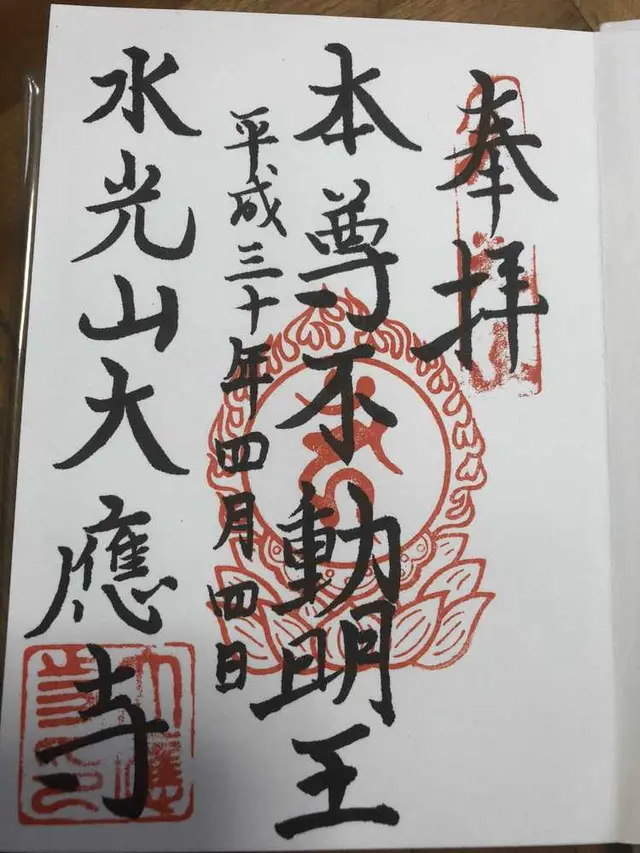 奉拝
本尊不動明王
平成三十年四月四日
水光山大應寺